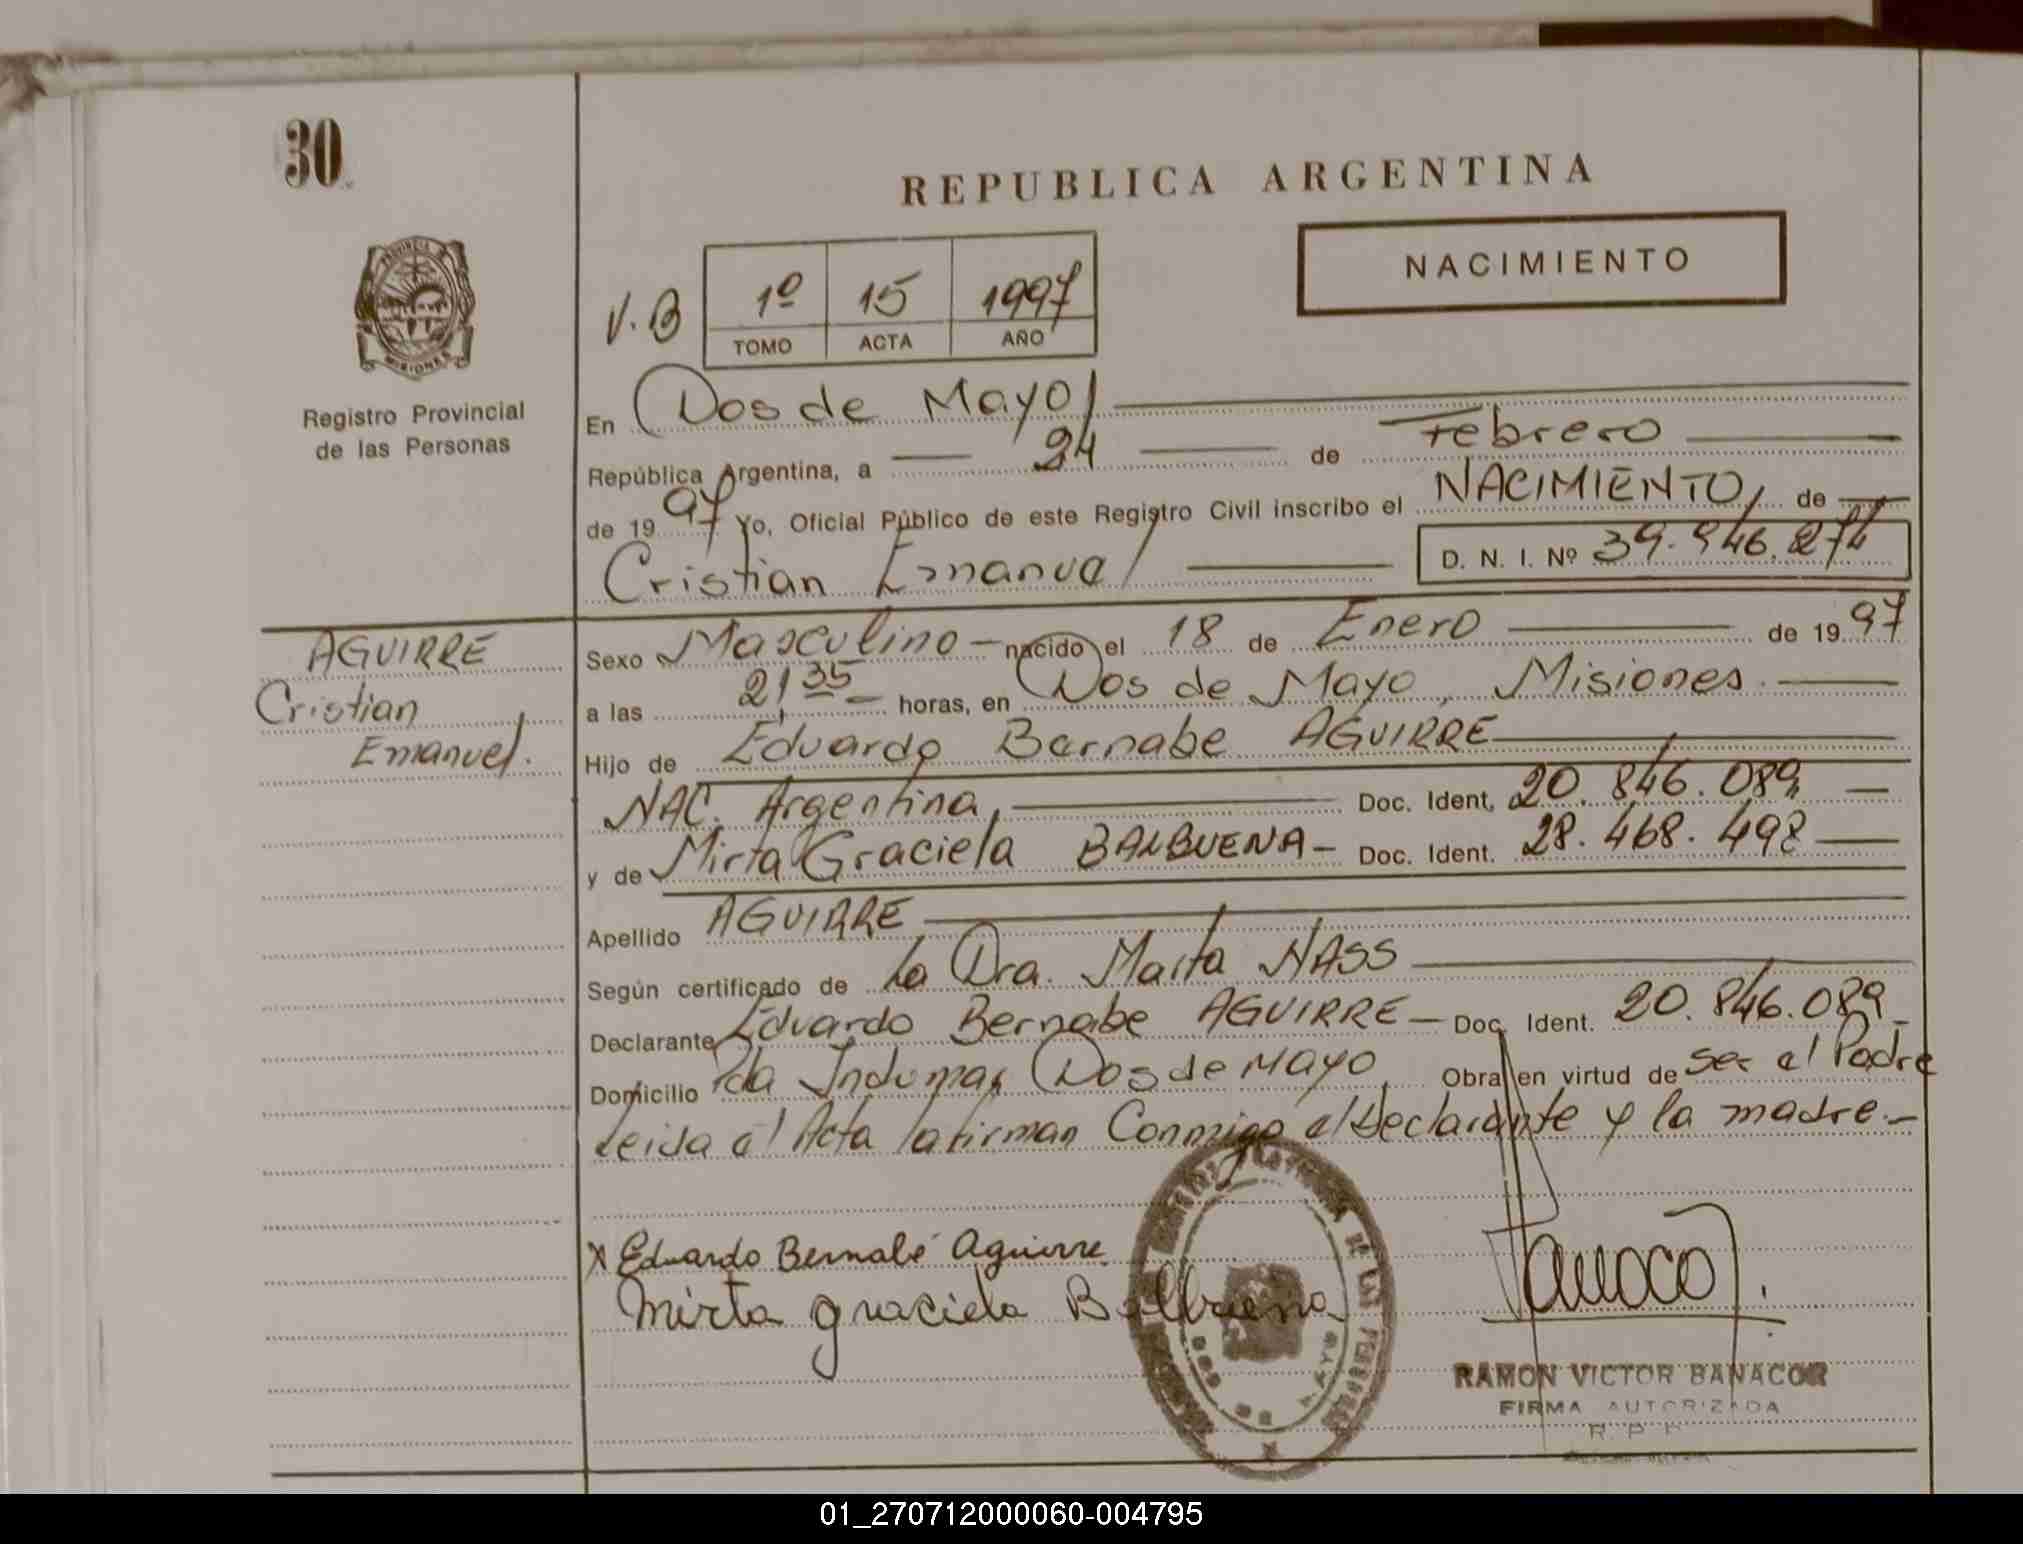 30
REPUBLICA ARGENTINA
NACIMIENTO
V.B
1º 15 1997
TOMO ACTA AÑO
PROVINCIA
MISIONES
Registro Provincial
de las Personas
En Dos de Mayo
República Argentina, a 24 de Febrero
de 1997 Yo, Oficial Público de este Registro Civil inscribo el NACIMIENTO, de
Cristian Emanuel D. N. I. Nº 39.946.274
AGUIRRE
Cristian
Emanuel.
Sexo Masculino - nacido el 18 de Enero de 1997
a las 21,35 horas, en Dos de Mayo, Misiones.
Hijo de Eduardo Bernabe AGUIRRE
NAC. Argentina, Doc. Ident. 20.846.089
y de Mirta Graciela BALBUENA - Doc. Ident. 28.468.498
Apellido AGUIRRE
Según certificado de La Dra. Marta NASS
Declarante Eduardo Bernabe AGUIRRE - Doc. Ident. 20.846.089
Domicilio Dos de Mayo, Obra en virtud de ser el Padre
Leida el Acta la firman Conmigo el Declarante y la madre.-
x Eduardo Bernabé Aguirre
Mirta graciela Balbuena
RAMON VICTOR BANACOR
FIRMA AUTORIZADA
01_270712000060-004795